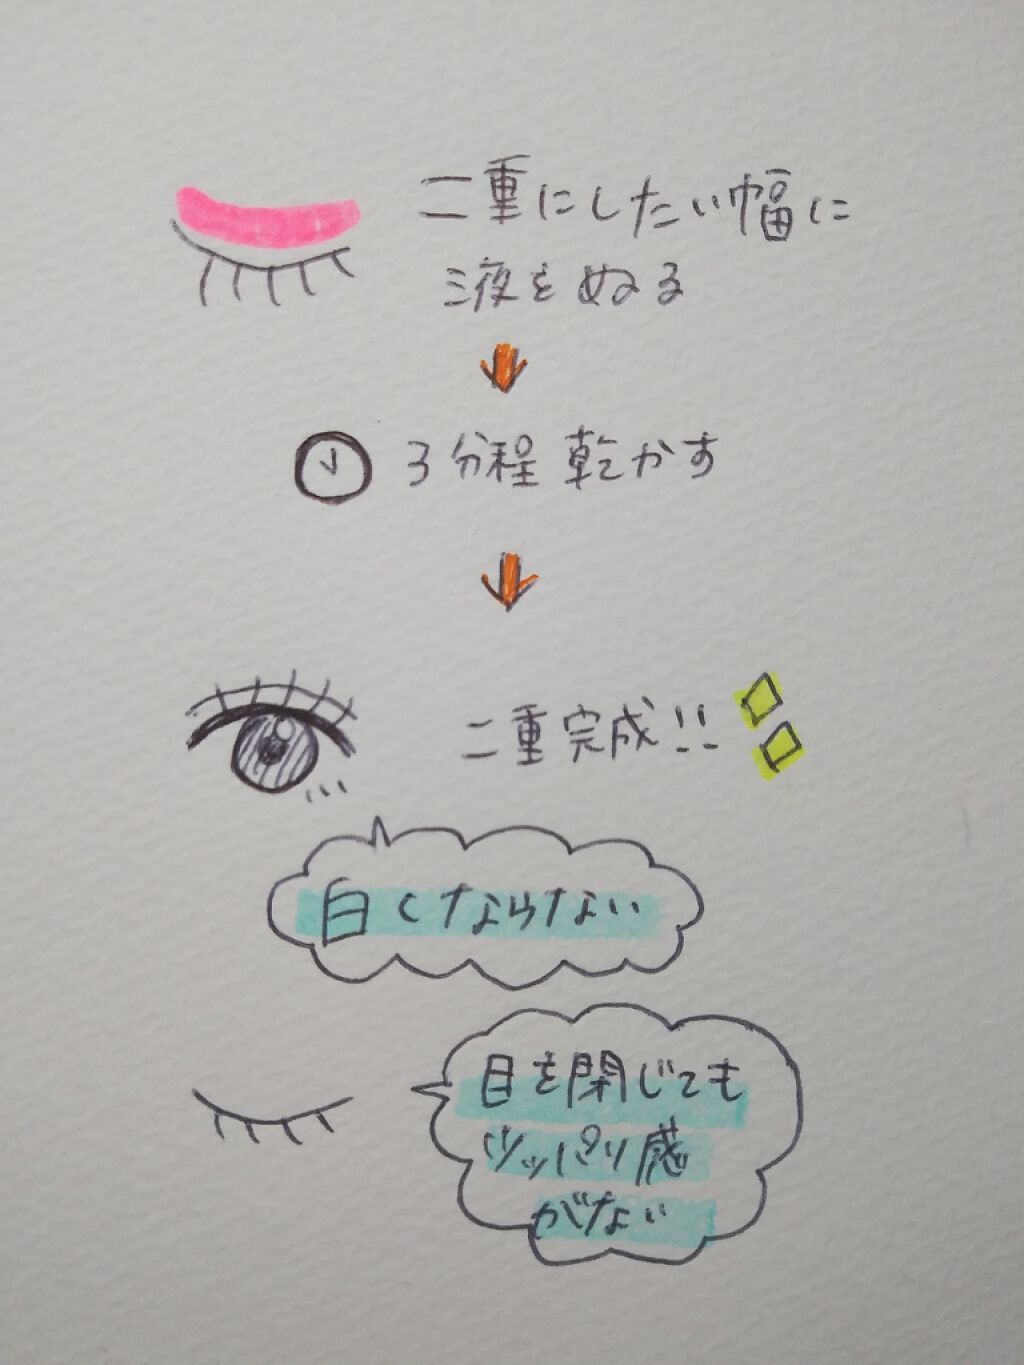 二重にしたい幅に
液をぬる
3分程乾かす
二重完成!!
白くならない
目を閉じても
ツッパリ感
がない